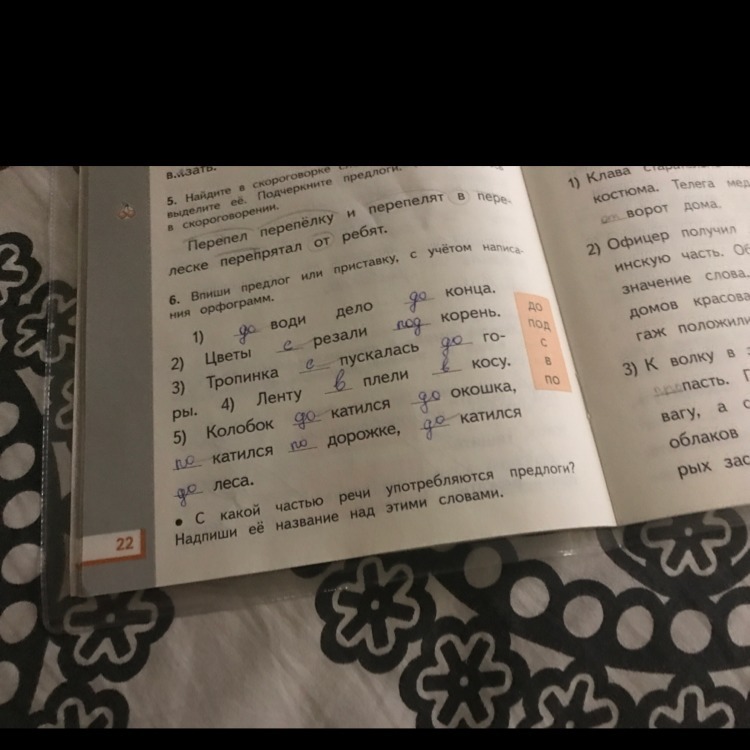 в.изать.
5. Найдите в скороговорке
выделите её. Подчеркните предлоги.
в скороговорении.
Перепел перепёлку и перепелят в пере-
леске перепрятал от ребят.
6. Впиши предлог или приставку, с учётом написа-
ния орфограмм.
1) до води дело до конца.
2) Цветы с резали под корень.
3) Тропинка с пускалась до го-
ры. 4) Ленту в плели в косу.
5) Колобок до катился до окошка,
по катился по дорожке, до катился
до леса.
• С какой частью речи употребляются предлоги?
Надпиши её название над этими словами.
22
до
под
с
в
по
1) Клава
костюма. Телега
ворот дома.
2) Офицер получил
инскую часть.
значение слова.
домов
гаж положили
3) К волку в
пасть.
вагу, а
облаков
рых